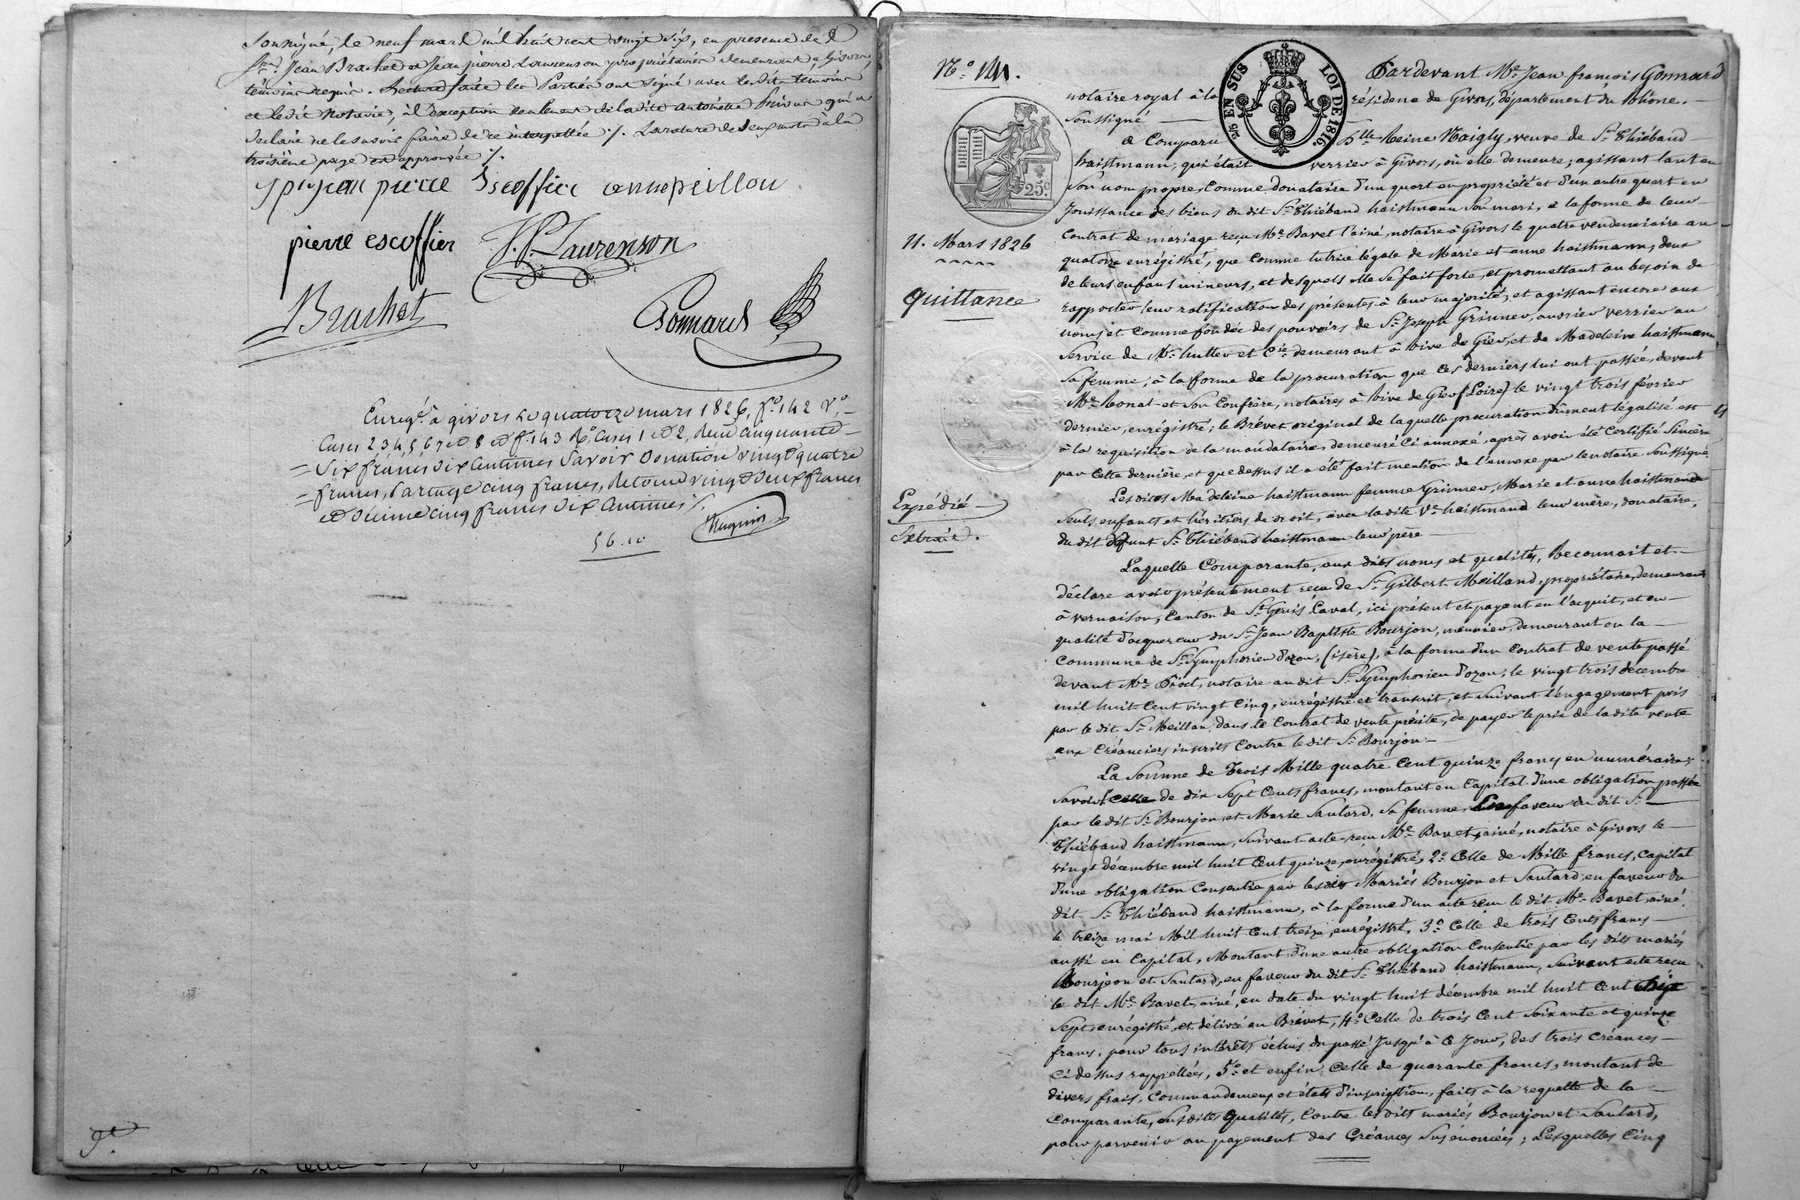 Soussigné, le neuf mars mil huit cent vingt six, en presence de
Jean Brachet et Jean pierre Laurenson propriétaires demeurant à Givors,
témoins requis. Lecture faite les Parties ont signé avec les dits témoins
et le dit Notaire, à l'exception seulement de la dite antoinette qui a
déclaré ne le savoir faire de ce interpellée ./. La rature de deux mots à la
troisième page est approuvée ./.
jean pierre Escoffier anne peillon
pierre escoffier J. P. Laurenson
Brachet Gonnard
Enregé à givors le quatorze mars 1826, fo. 142 Vo.
Cases 2 3 4 5 6 7 et 8 et fo. 143 Ro. Cases 1 et 2, Reçu Cinquante
= Six francs dix Centimes Savoir Donation vingt quatre
= francs, Partage cinq francs, Retour vingt deux francs
et décime cinq francs dix Centimes ./.
56.10
9e.
No.
EN SUS LOI DE 1816.
25 c
11. Mars 1826
Quittance
Expédié
Extrait.
Pardevant Me. Jean françois Gonnard
notaire royal à la résidence de Givors, département du Rhône.
Soussigné
a Comparu Reine Naigly, veuve de Sr. Thiébaud
haistmann, qui était verrier à Givors, où elle demeure; agissant tant en
Son nom propre, Comme donataire d'un quart en propriété et d'un autre quart en
jouissance des biens du dit Sr. Thiébaud haistmann Son mari, à la forme de leur
Contrat de mariage reçu Me. Bavet l'ainé, notaire à Givors le quatre vendemiaire an
quatorze enregistré, que comme tutrice légale de Marie et anne haistmann, deux
de leurs enfans mineurs, et desquels elle Se fait forte, et promettant au besoin de
rapporter leur ratification des présentes à leur majorité, et agissant encore aux
noms et Comme fondée des pouvoirs de Sr. Joseph Grinner, ouvrier verrier au
Service de Mr. hutter et Cie. demeurant à Rive de Gier, et de Madeleine haistmann
Sa femme; à la forme de la procuration que ces derniers lui ont passée, devant
Me. Bonat et Son Confrère, notaires à Rive de Gier (Loire) le vingt trois février
dernier, enregistré; le Brevet original de laquelle procuration dûment légalisé est
à la requisition de la mandataire demeuré ci annexé, après avoir été certifié Sincère
par Cette dernière, et que dessus il a été fait mention de l'annexe par le notaire Soussigné.
Les dites Madeleine haistmann femme Grinner, Marie et anne haistmann
Seuls enfants et héritiers de droit, avec la dite Ve. haistmann leur mère, donataire,
du dit défunt Sr. Thiébaud haistmann leur père
Laquelle Comparante, aux dits noms et qualités, Reconnait et
déclare avoir présentement reçu de Sr. Gilbert Meilland, propriétaire, demeurant
à vernaison, Canton de St. Genis Laval, ici présent et payant en l'acquit, et en
qualité d'acquereur du Sr. Jean Baptiste Bourjon, meunier, demeurant en la
commune de St. Symphorien d'ozon, (isère), à la forme d'un Contrat de vente passé
devant Me. Piot, notaire au dit St. Symphorien d'ozon, le vingt trois décembre
mil huit Cent vingt Cinq, enregistré et transcrit, et suivant l'engagement pris
par le dit Sr. Meilland dans le Contrat de vente précité, de payer le prix de la dite vente
aux créanciers inscrits Contre le dit Sr. Bourjon
La Somme de Trois Mille quatre Cent quinze francs en numéraire;
Savoir: Celle de dix Sept Cents francs, montant en Capital d'une obligation passée
par le dit Sr. Bourjon et Marie Santard, Sa femme, En faveur du dit Sr.
Thiébaud haistmann, Suivant acte reçu Me. Bavet, ainé, notaire à Givors le
vingt décembre mil huit Cent quinze, enregistré, 2o. Celle de Mille francs, Capital
d'une obligation Consentie par les dits Mariés Bourjon et Santard, en faveur du
dit Sr. Thiébaud haistmann, à la forme d'un acte reçu le dit Me. Bavet, ainé,
le treize mai Mil huit Cent treize, enregistré, 3o. Celle de trois Cents francs
aussi en Capital, Montant d'une autre obligation Consentie par les dits mariés
Bourjeon et Santard, en faveur du dit Sr. Thiébaud haistmann, Suivant acte reçu
le dit Me. Bavet, ainé, en date du vingt huit décembre mil huit Cent dix
Sept, enregistré, et délivré en Brevet, 4o. Celle de trois Cent Soixante et quinze
francs, pour tous intérêts échus du passé Jusqu'à ce Jour, des trois créances
Ci dessus rappellées, 5o. et enfin, Celle de quarante francs, montant de
divers frais, Commandement et états d'inscription, faits à la requette de la
Comparante, ensdites qualités, Contre les dits mariés Bourjon et Santard,
pour parvenir au payement des Créances Susénoncées; Lesquelles Cinq